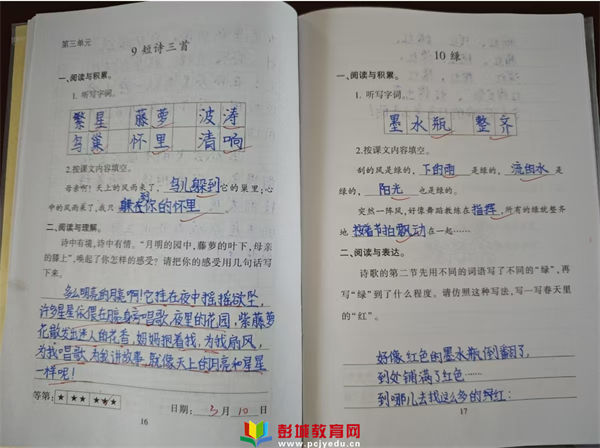 第三单元
9 短诗三首
一、阅读与积累。
1. 听写字词。
繁星 藤萝 波涛
鸟巢 怀里 清响
2.按课文内容填空。
母亲啊!天上的风雨来了,鸟儿躲到它的巢里;心
中的风雨来了,我只躲到你的怀里
二、阅读与理解。
诗中有境,诗中有情。“月明的园中,藤萝的叶下,母亲
的膝上”,唤起了你怎样的感受?请把你的感受用几句话写
下来。
多么明亮的月亮啊!它挂在夜中摇摇欲坠,
许多星星依偎在月亮身旁唱歌,夜里的花园,紫藤萝
花散发出迷人的花香,妈妈抱着我,为我扇风,
为我唱歌,为我讲故事,就像天上的月亮和星星
一样呢!
等第: ★ ★★ ★★★ 日期: 3月10日
16
10 绿
一、阅读与积累。
1. 听写字词。
墨水瓶 整齐
2.按课文内容填空。
刮的风是绿的,下的雨是绿的,流的水是
绿的,阳光也是绿的。
突然一阵风,好像舞蹈教练在指挥,所有的绿就整齐
地按着节拍飘动在一起……
二、阅读与表达。
诗歌的第二节先用不同的词语写了不同的“绿”,再
写“绿”到了什么程度。请仿照这种写法,写一写春天里
的“红”。
好像红色的墨水瓶倒翻了,
到处铺满了红色……
到哪儿去找这么多的红:
17
彭城教育网
www.pcjyedu.cn